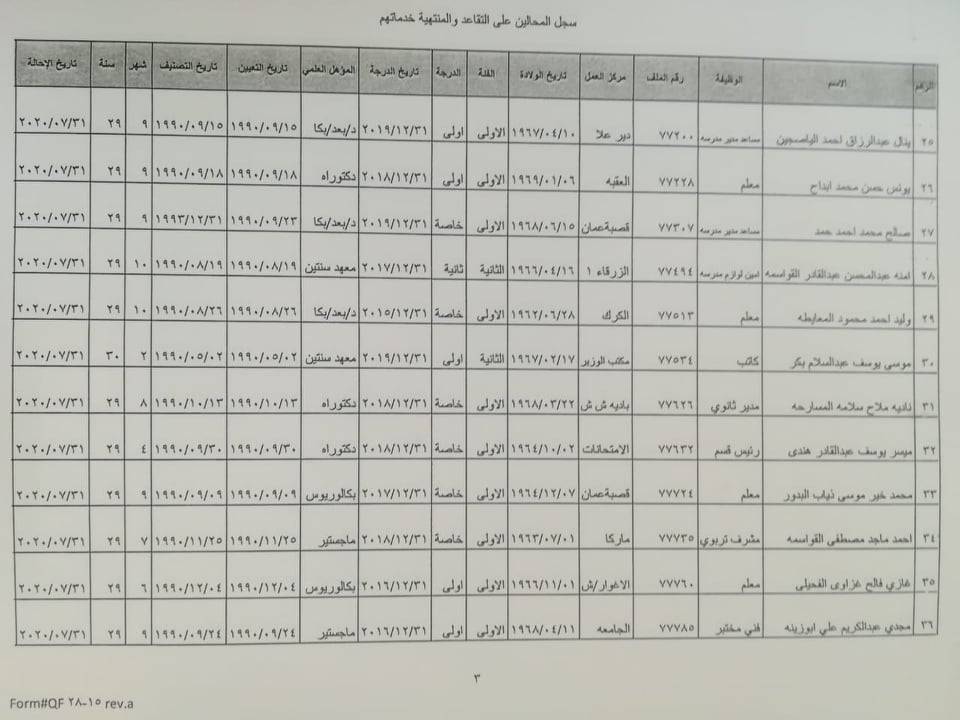 سجل المحالين على التقاعد والمنتهية خدماتهم
الرقم الاسم الوظيفة رقم الملف مركز العمل تاريخ الولادة الفئة الدرجة تاريخ الدرجة المؤهل العلمي تاريخ التعيين تاريخ التصنيف شهر سنة تاريخ الإحالة
٢٥ ينال عبدالرزاق احمد الياصجين مساعد مدير مدرسه ٧٧٢٠٠ دير علا ١٩٦٧/٠٤/١٠ الاولى اولى ٢٠١٩/١٢/٣١ د/بعد/بكا ١٩٩٠/٠٩/١٥ ١٩٩٠/٠٩/١٥ ٩ ٢٩ ٢٠٢٠/٠٧/٣١
٢٦ يونس حسن محمد ابداح معلم ٧٧٢٢٨ العقبه ١٩٦٩/٠١/٠٦ الاولى اولى ٢٠١٨/١٢/٣١ دكتوراه ١٩٩٠/٠٩/١٨ ١٩٩٠/٠٩/١٨ ٩ ٢٩ ٢٠٢٠/٠٧/٣١
٢٧ صالح محمد احمد حمد مساعد مدير مدرسه ٧٧٣٠٧ قصبةعمان ١٩٦٨/٠٦/١٥ الاولى خاصة ٢٠١٩/١٢/٣١ د/بعد/بكا ١٩٩٠/٠٩/٢٣ ١٩٩٣/١٢/٣١ ٩ ٢٩ ٢٠٢٠/٠٧/٣١
٢٨ امنه عبدالمحسن عبدالقادر القواسمه امين لوازم مدرسه ٧٧٤٩٤ الزرقاء ١ ١٩٦٦/٠٤/١٦ الثانية ثانية ٢٠١٧/١٢/٣١ معهد سنتين ١٩٩٠/٠٨/١٩ ١٩٩٠/٠٨/١٩ ١٠ ٢٩ ٢٠٢٠/٠٧/٣١
٢٩ وليد احمد محمود المعايطه معلم ٧٧٥١٣ الكرك ١٩٦٢/٠٦/٢٨ الاولى خاصة ٢٠١٥/١٢/٣١ د/بعد/بكا ١٩٩٠/٠٨/٢٦ ١٩٩٠/٠٨/٢٦ ١٠ ٢٩ ٢٠٢٠/٠٧/٣١
٣٠ موسى يوسف عبدالسلام بكر كاتب ٧٧٥٣٤ مكتب الوزير ١٩٦٧/٠٢/١٧ الثانية اولى ٢٠١٩/١٢/٣١ معهد سنتين ١٩٩٠/٠٥/٠٢ ١٩٩٠/٠٥/٠٢ ٢ ٣٠ ٢٠٢٠/٠٧/٣١
٣١ ناديه ملاح سلامه المسارحه مدير ثانوي ٧٧٦٢٦ باديه ش ش ١٩٦٨/٠٣/٢٢ الاولى خاصة ٢٠١٨/١٢/٣١ دكتوراه ١٩٩٠/١٠/١٣ ١٩٩٠/١٠/١٣ ٨ ٢٩ ٢٠٢٠/٠٧/٣١
٣٢ ميسر يوسف عبدالقادر هندى رئيس قسم ٧٧٦٣٢ الامتحانات ١٩٦٤/١٠/٠٢ الاولى خاصة ٢٠١٨/١٢/٣١ دكتوراه ١٩٩٠/٠٩/٣٠ ١٩٩٠/٠٩/٣٠ ٤ ٢٩ ٢٠٢٠/٠٧/٣١
٣٣ محمد خير موسى ذياب البدور معلم ٧٧٧٢٤ قصبةعمان ١٩٦٤/١٢/٠٧ الاولى خاصة ٢٠١٧/١٢/٣١ بكالوريوس ١٩٩٠/٠٩/٠٩ ١٩٩٠/٠٩/٠٩ ٩ ٢٩ ٢٠٢٠/٠٧/٣١
٣٤ احمد ماجد مصطفى القواسمه مشرف تربوي ٧٧٧٣٥ ماركا ١٩٦٣/٠٧/٠١ الاولى خاصة ٢٠١٨/١٢/٣١ ماجستير ١٩٩٠/١١/٢٥ ١٩٩٠/١١/٢٥ ٧ ٢٩ ٢٠٢٠/٠٧/٣١
٣٥ غازي فالح غزاوى الفحيلى معلم ٧٧٧٦٠ الاغوار/ش ١٩٦٦/١١/٠١ الاولى اولى ٢٠١٦/١٢/٣١ بكالوريوس ١٩٩٠/١٢/٠٤ ١٩٩٠/١٢/٠٤ ٦ ٢٩ ٢٠٢٠/٠٧/٣١
٣٦ مجدي عبدالكريم علي ابوزينه فني مختبر ٧٧٧٨٥ الجامعه ١٩٦٨/٠٤/١١ الاولى اولى ٢٠١٦/١٢/٣١ ماجستير ١٩٩٠/٠٩/٢٤ ١٩٩٠/٠٩/٢٤ ٩ ٢٩ ٢٠٢٠/٠٧/٣١
٣
Form#QF ٢٨-١٥ rev.a